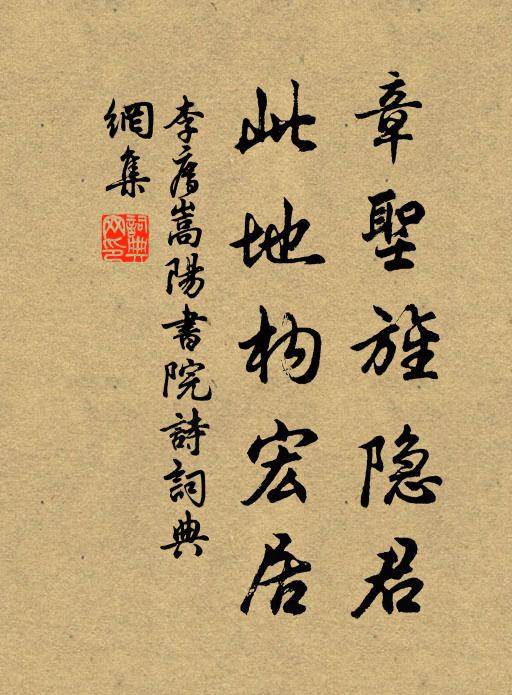 章聖旌隐君
此地构宏居
李廌嵩陽書院詩詞典
網集
詞典网印